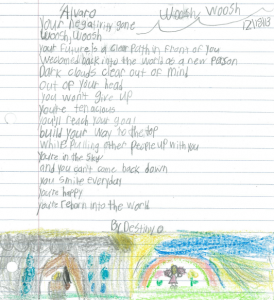 Alvaro
Woosh, Woosh
Your negativity gone
Woosh, Woosh
your future is a clear path in front of you
Welcomed back into the world as a new person
Dark clouds clear out of mind
Out of your head
you won't give up
You're tenacious
you'll reach your goal
build your way to the top
While pulling other people up with you
you're in the sky
and you can't come back down
you smile everyday
you're happy
you're reborn into the world
By Destiny O